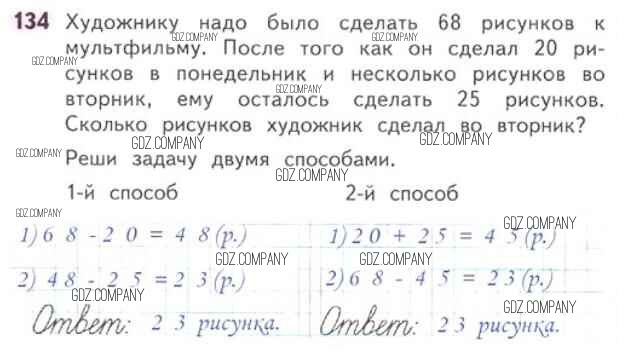 134 Художнику надо было сделать 68 рисунков к
мультфильму. После того как он сделал 20 ри-
сунков в понедельник и несколько рисунков во
вторник, ему осталось сделать 25 рисунков.
Сколько рисунков художник сделал во вторник?
Реши задачу двумя способами.
1-й способ 2-й способ
1) 68 - 20 = 48 (р.) 1) 20 + 25 = 45 (р.)
2) 48 - 25 = 23 (р.) 2) 68 - 45 = 23 (р.)
Ответ: 23 рисунка. Ответ: 23 рисунка.
GDZ.COMPANY
GDZ.COMPANY
GDZ.COMPANY
GDZ.COMPANY
GDZ.COMPANY
GDZ.COMPANY
GDZ.COMPANY
GDZ.COMPANY
GDZ.COMPANY
GDZ.COMPANY
GDZ.COMPANY
GDZ.COMPANY
GDZ.COMPANY
GDZ.COMPANY